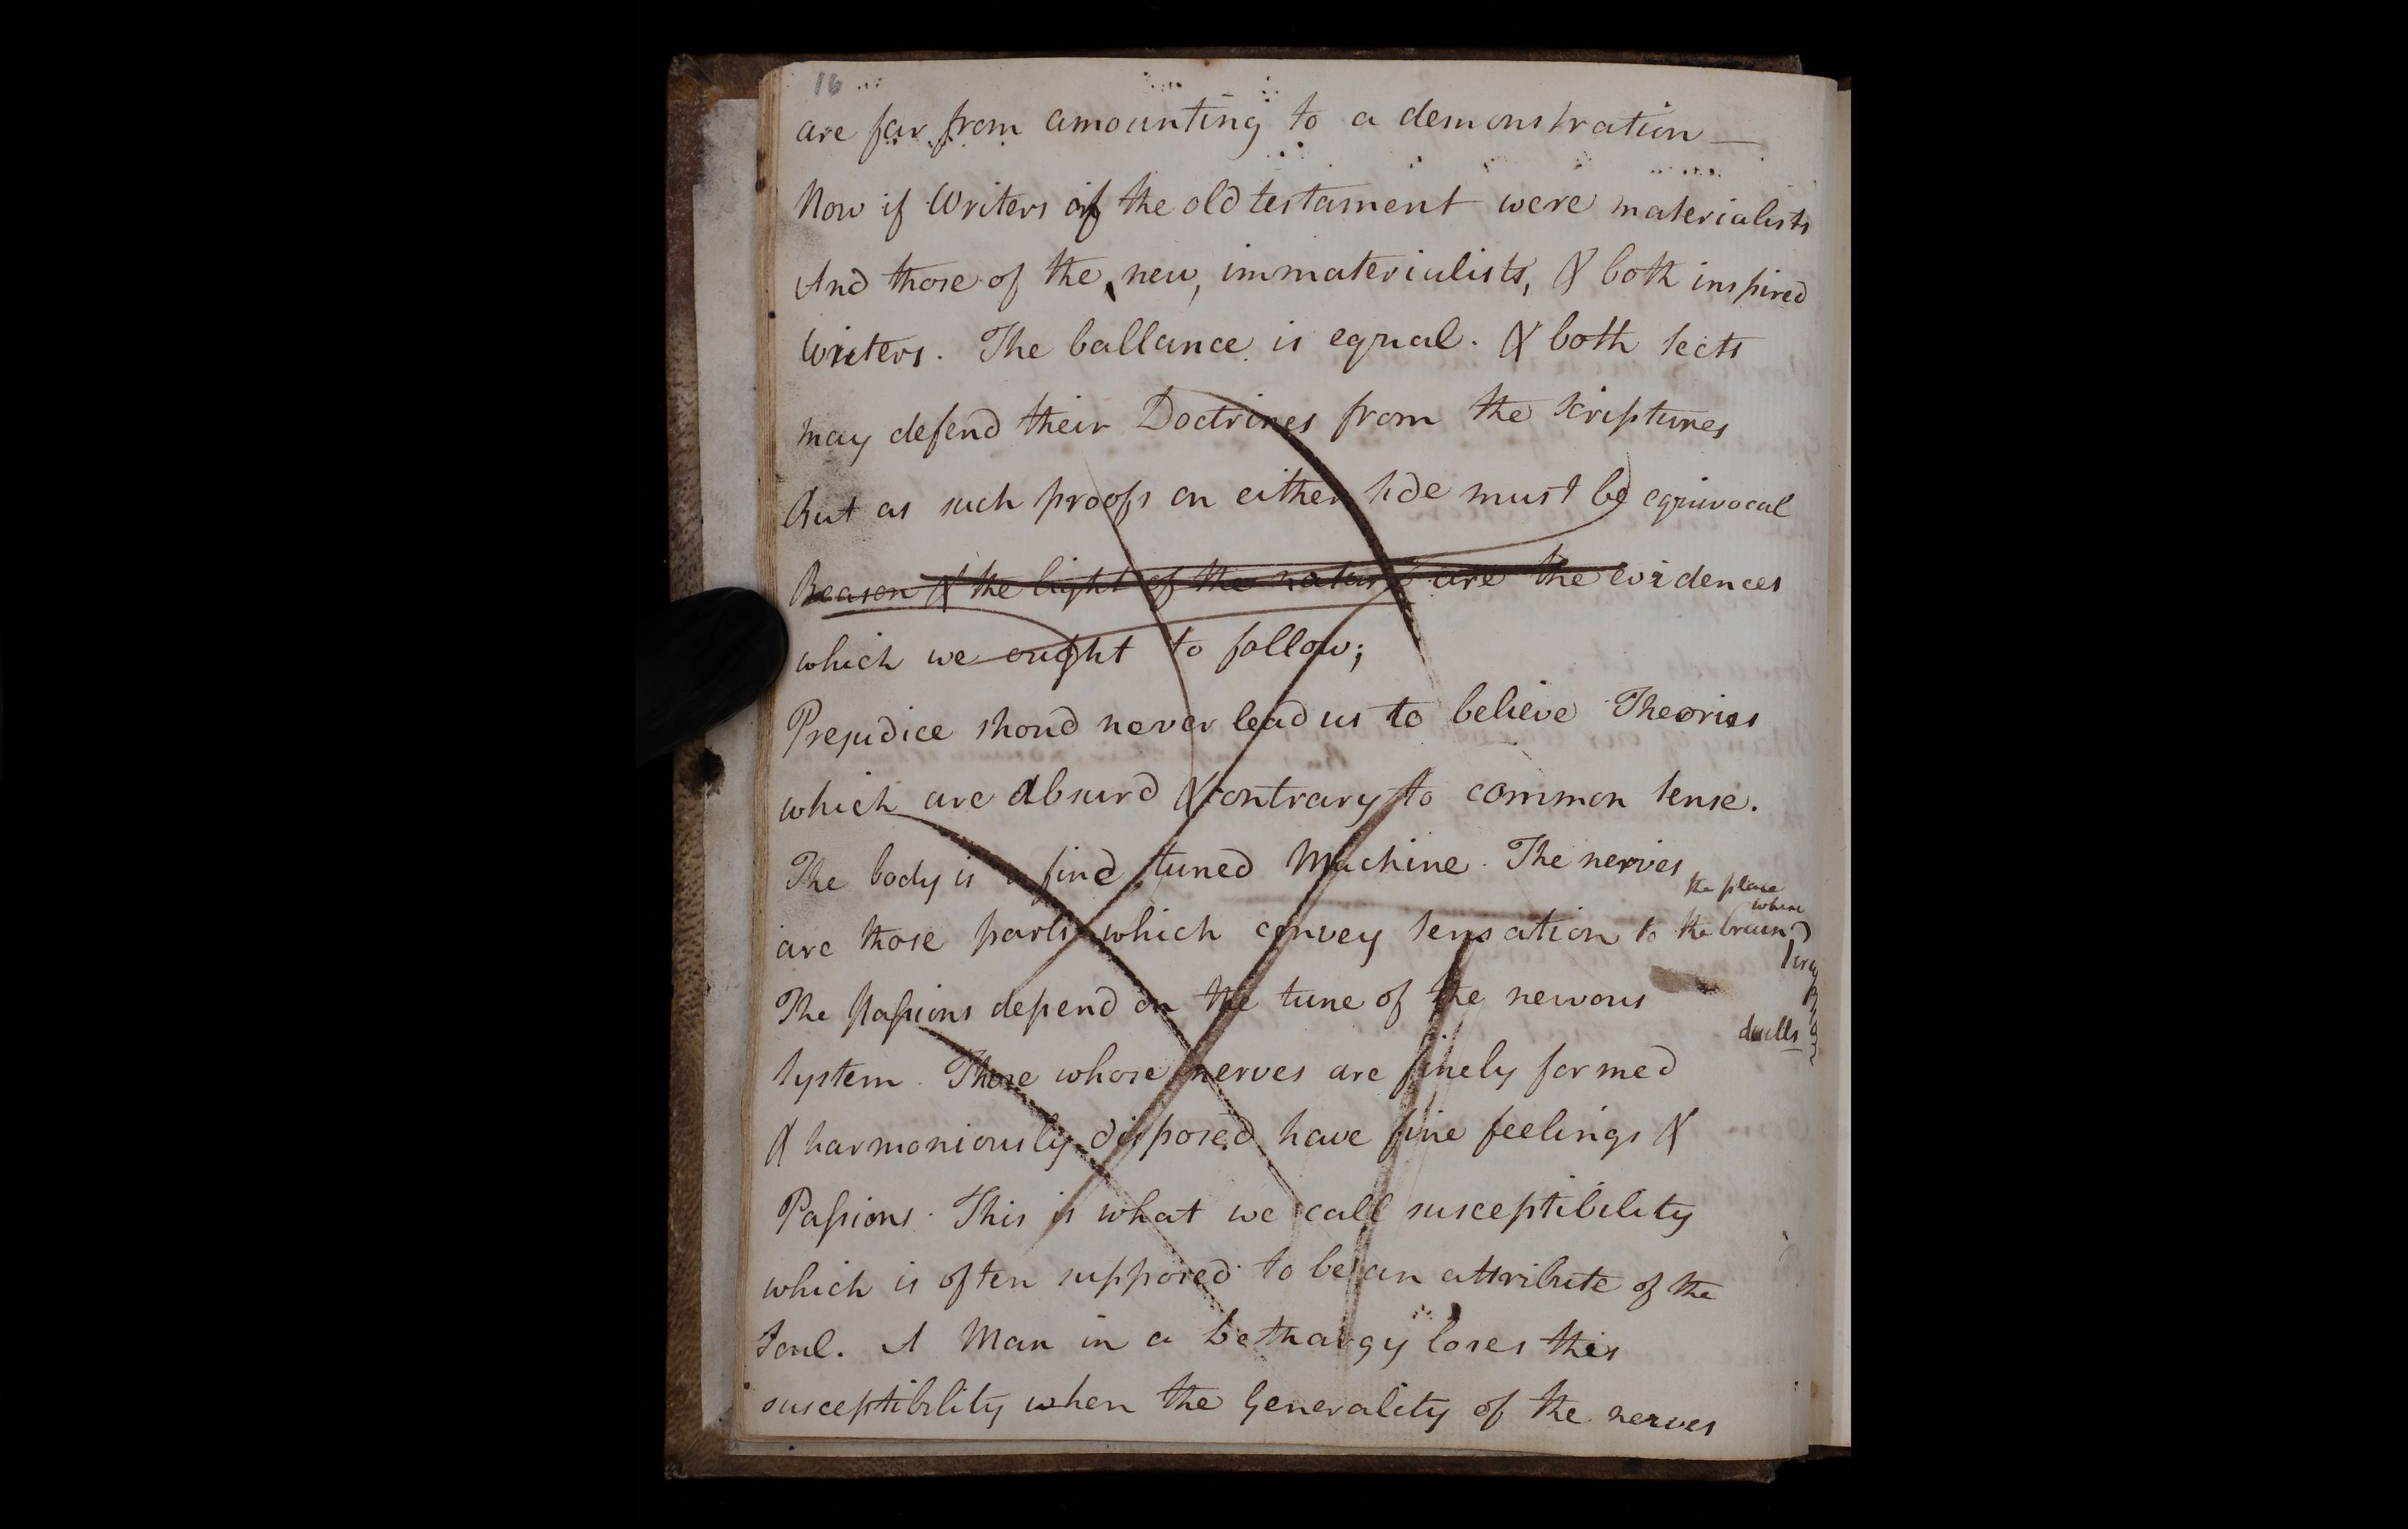 16
are far from amounting to a demonstration —
Now if Writers of the old testament were materialists
And those of the new, immaterialists, & both inspired
Writers. The ballance is equal. & both sects
may defend their Doctrines from the Scriptures
But as such proofs on either side must be equivocal
Reason & the light of the nature are the evidences
which we ought to follow;
Prejudice shoud never lead us to believe Theories
which are absurd & contrary to common sense.
The body is a fine tuned Machine. The nerves
are those parts which convey sensation to the brain
the place where
dwells
The Passions depend on the tune of the nervous
System. Those whose nerves are finely formed
& harmoniously disposed have fine feelings &
Passions. This is what we call susceptibility
which is often supposed to be an attribute of the
Soul. A Man in a Lethargy loses this
susceptibility when the Generality of the nerves